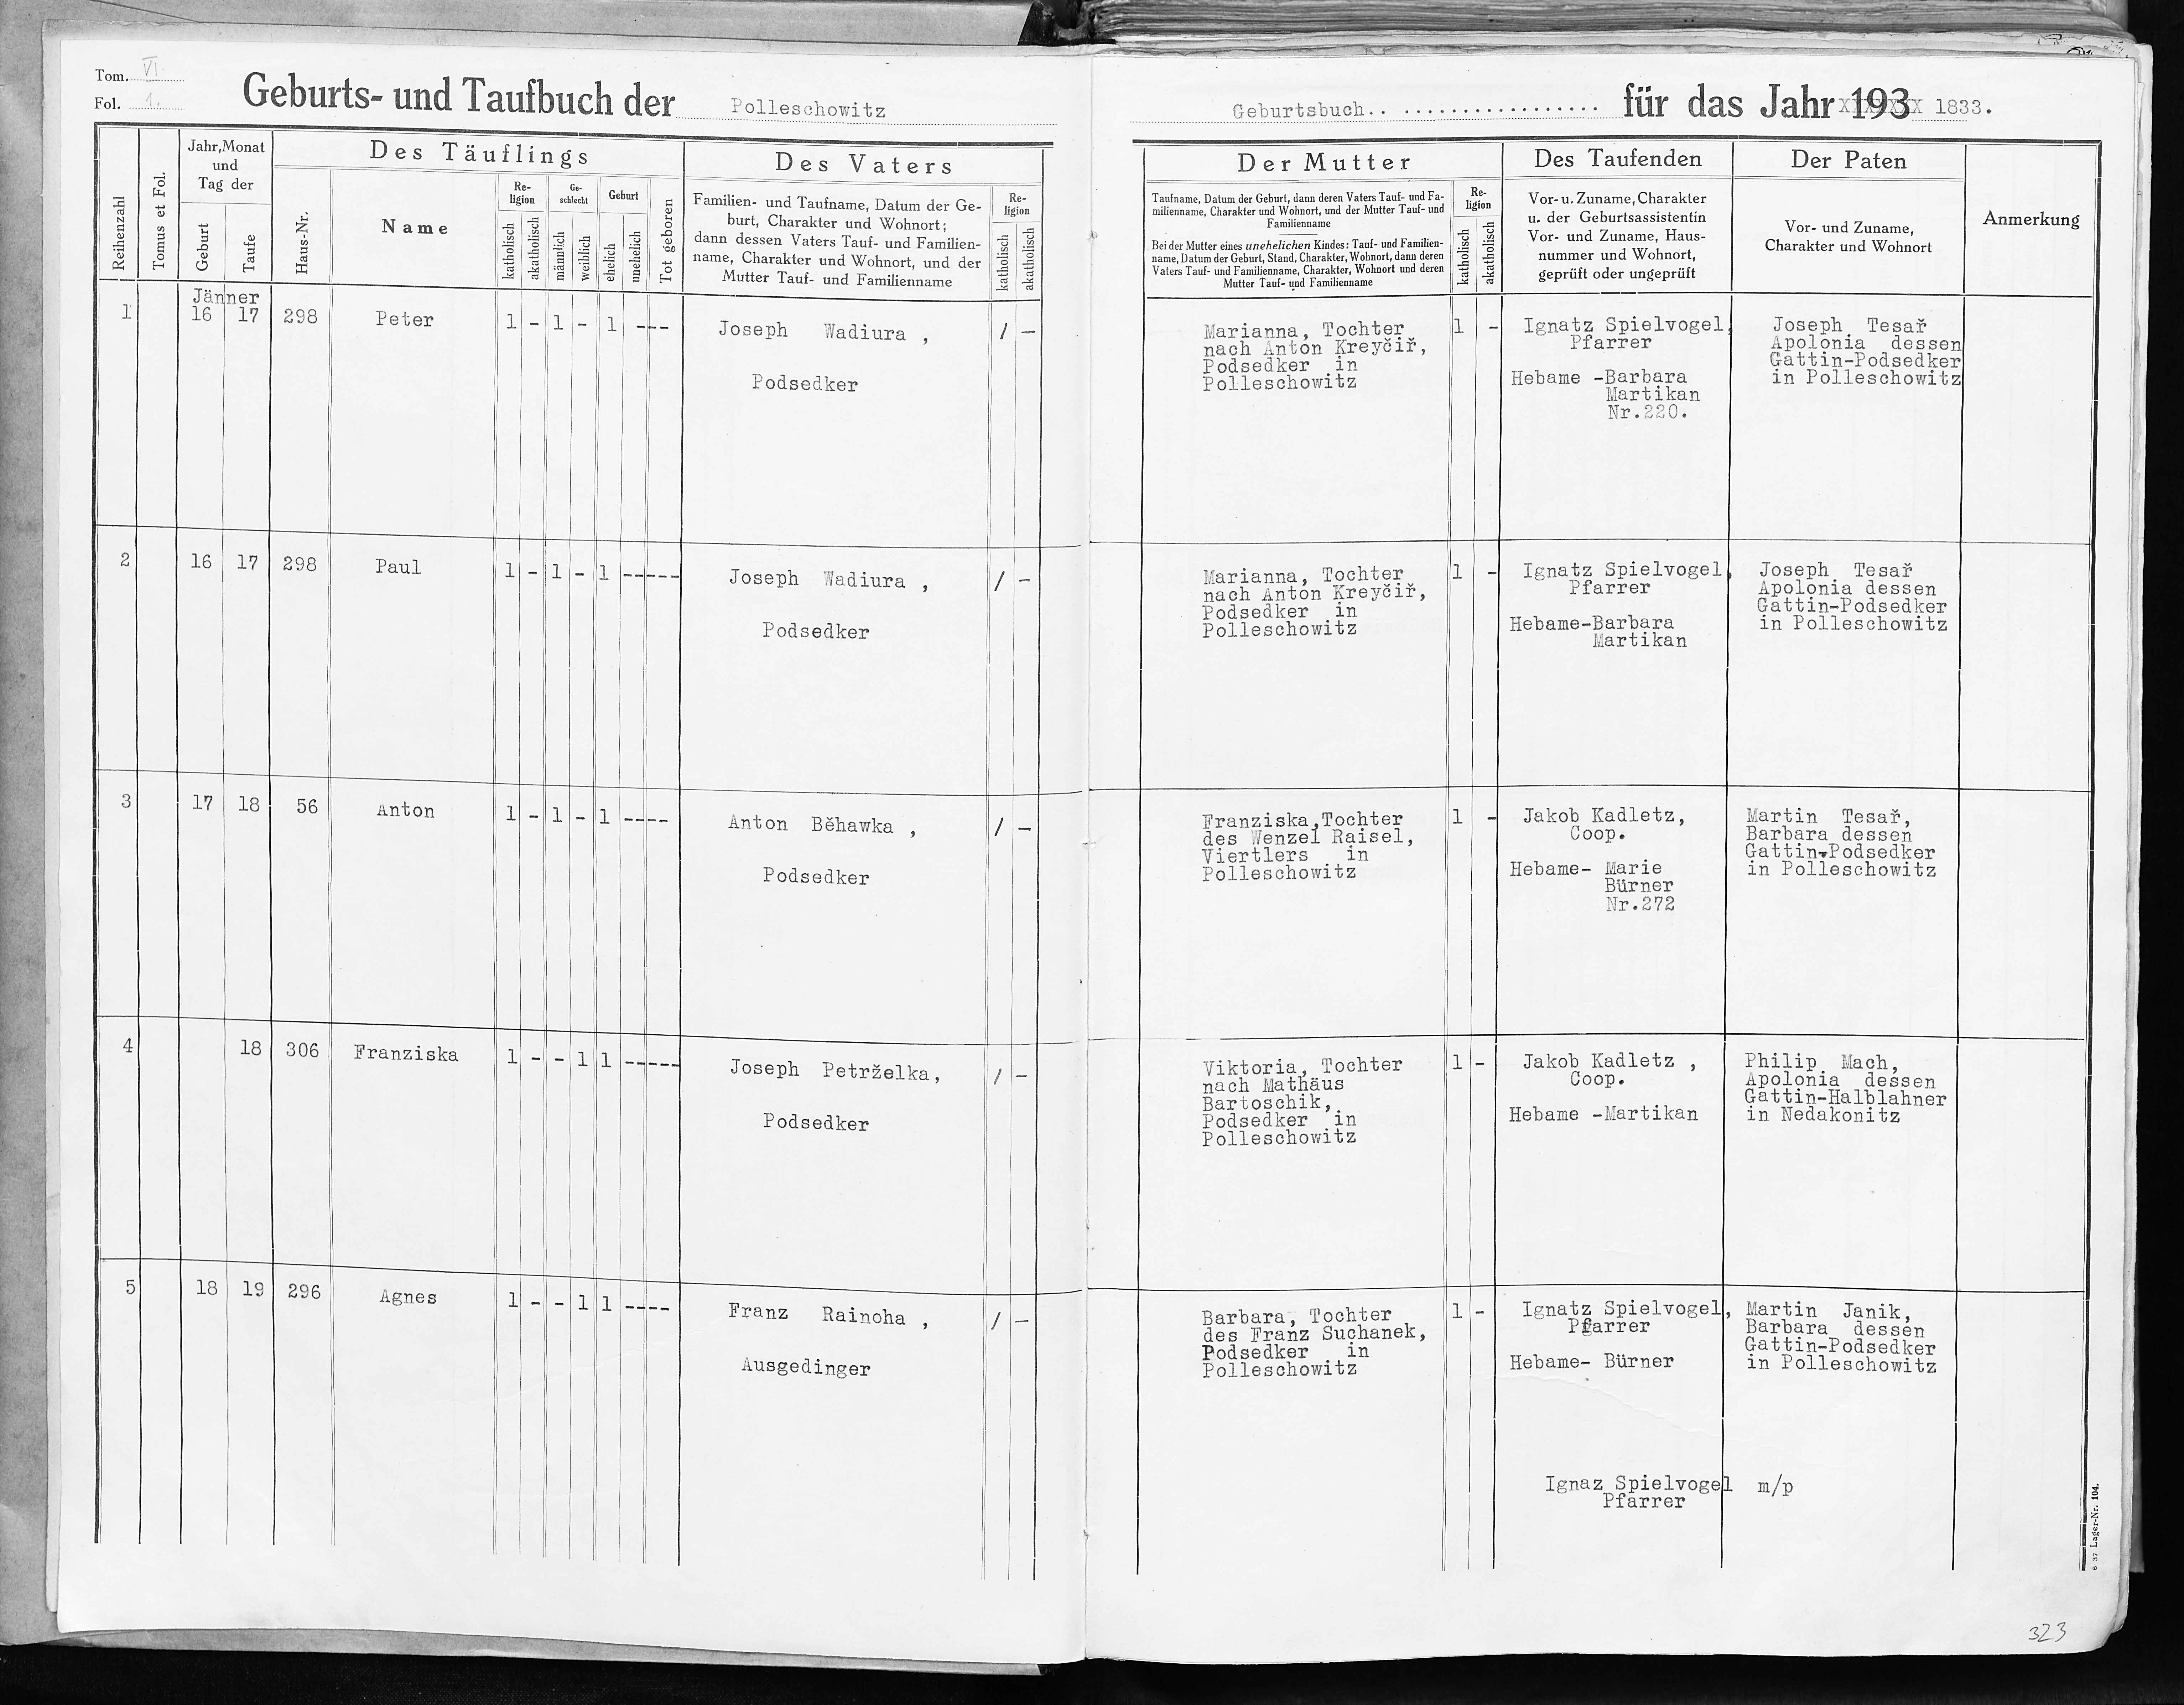 Tom. VI
Fol. 1.
Geburts- und Taufbuch der Polleschowitz
Geburtsbuch.. .................. für das Jahr 193 1833.
Reihenzahl
Tomus et Fol.
Jahr, Monat
und
Tag der
Geburt
Taufe
Des Täuflings
Haus-Nr.
Name
Re-
ligion
katholisch
akatholisch
Ge-
schlecht
männlich
weiblich
Geburt
ehelich
unehelich
Tot geboren
Des Vaters
Familien- und Taufname, Datum der Ge-
burt, Charakter und Wohnort;
dann dessen Vaters Tauf- und Familien-
name, Charakter und Wohnort, und der
Mutter Tauf- und Familienname
Re-
ligion
katholisch
akatholisch
Der Mutter
Taufname, Datum der Geburt, dann deren Vaters Tauf- und Fa-
milienname, Charakter und Wohnort, und der Mutter Tauf- und
Familienname
Bei der Mutter eines unehelichen Kindes: Tauf- und Familien-
name, Datum der Geburt, Stand, Charakter, Wohnort, dann deren
Vaters Tauf- und Familienname, Charakter, Wohnort und deren
Mutter Tauf- und Familienname
Re-
ligion
katholisch
akatholisch
Des Taufenden
Vor- u. Zuname, Charakter
u. der Geburtsassistentin
Vor- und Zuname, Haus-
nummer und Wohnort,
geprüft oder ungeprüft
Der Paten
Vor- und Zuname,
Charakter und Wohnort
Anmerkung
Jänner
1 16 17 298 Peter 1 - 1 - 1 ---
Joseph Wadiura , / -
Podsedker
Marianna, Tochter 1 -
nach Anton Kreyčiř,
Podsedker in
Polleschowitz
Ignatz Spielvogel,
Pfarrer
Hebame -Barbara
Martikan
Nr.220.
Joseph Tesař
Apolonia dessen
Gattin-Podsedker
in Polleschowitz
2 16 17 298 Paul 1 - 1 - 1 -----
Joseph Wadiura , / -
Podsedker
Marianna, Tochter 1 -
nach Anton Kreyčiř,
Podsedker in
Polleschowitz
Ignatz Spielvogel,
Pfarrer
Hebame-Barbara
Martikan
Joseph Tesař
Apolonia dessen
Gattin-Podsedker
in Polleschowitz
3 17 18 56 Anton 1 - 1 - 1 ----
Anton Běhawka , / -
Podsedker
Franziska,Tochter 1 -
des Wenzel Raisel,
Viertlers in
Polleschowitz
Jakob Kadletz,
Coop.
Hebame- Marie
Bürner
Nr.272
Martin Tesař,
Barbara dessen
Gattin-Podsedker
in Polleschowitz
4 18 306 Franziska 1 - - 1 1 -----
Joseph Petrželka, / -
Podsedker
Viktoria, Tochter 1 -
nach Mathäus
Bartoschik,
Podsedker in
Polleschowitz
Jakob Kadletz ,
Coop.
Hebame -Martikan
Philip Mach,
Apolonia dessen
Gattin-Halblahner
in Nedakonitz
5 18 19 296 Agnes 1 - - 1 1 ----
Franz Rainoha , / -
Ausgedinger
Barbara, Tochter 1 -
des Franz Suchanek,
Podsedker in
Polleschowitz
Ignatz Spielvogel,
Pfarrer
Hebame- Bürner
Martin Janik,
Barbara dessen
Gattin-Podsedker
in Polleschowitz
Ignaz Spielvogel m/p
Pfarrer
6 37 Lager-Nr. 104.
323